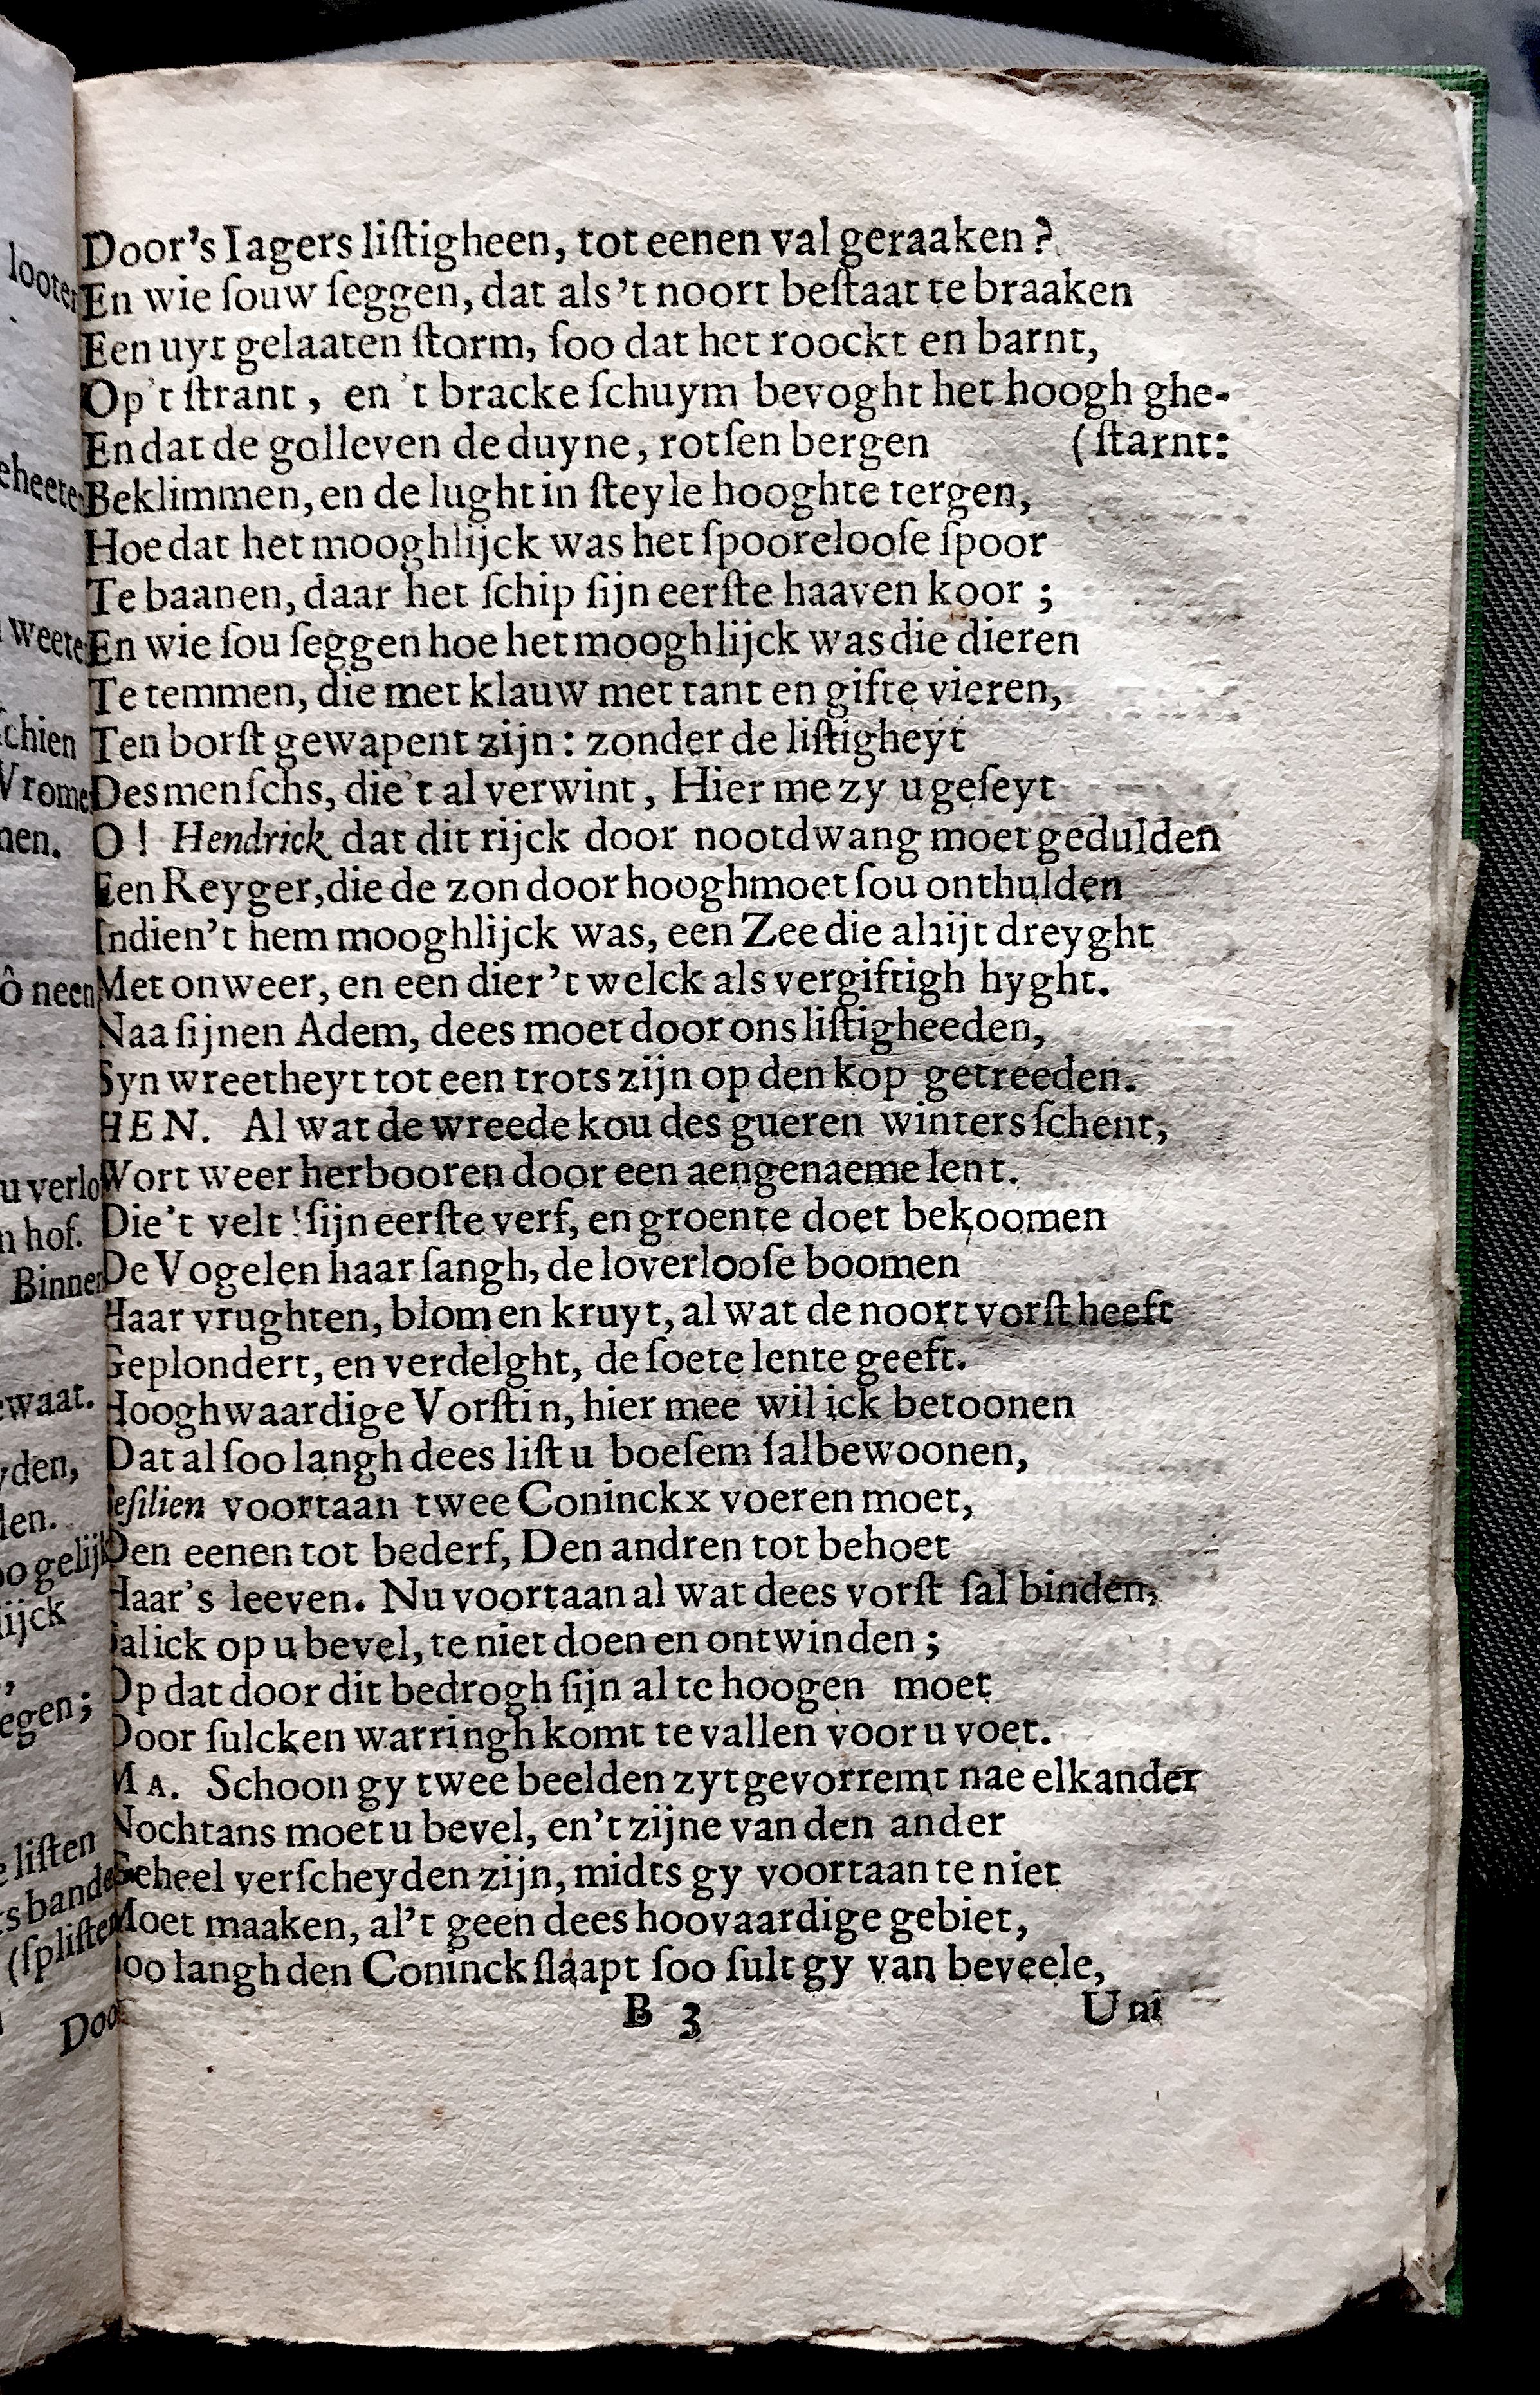 Door's Iagers liſtigheen, tot eenen val geraaken?
En wie ſouw ſeggen, dat als 't noort beſtaat te braaken
Een uyt gelaaten ſtorm, ſoo dat het roockt en barnt,
Op 't ſtrant, en 't bracke ſchuym bevoght het hoogh ghe-
En dat de golleven de duyne, rotſen bergen (ſtarnt:
Beklimmen, en de lught in ſteyle hooghte tergen,
Hoe dat het mooghlijck was het ſpooreloofe ſpoor
Te baanen, daar het ſchip ſijn eerſte haaven koor;
En wie ſou ſeggen hoe het mooghlijck was die dieren
Te temmen, die met klauw met tant en gifte vieren,
Ten borſt gewapent zijn: zonder de liſtigheyt
Des menſchs, die 't al verwint, Hier me zy u geſeyt
O! Hendrick dat dit rijck door nootdwang moet gedulden
Een Reyger, die de zon door hooghmoet ſou onthulden
Indien't hem mooghlijck was, een Zee die altijt dreyght
Met onweer, en een dier't welck als vergiftigh hyght.
Naa ſijnen Adem, dees moet door ons liſtigheeden,
Syn wreetheyt tot een trots zijn op den kop getreeden.
HEN. Al wat de wreede kou des gueren winters ſchent,
Wort weer herbooren door een aengenaeme lent.
Die't velt ſijn eerſte verf, en groente doet bekoomen
De Vogelen haar ſangh, de loverlooſe boomen
Haar vrughten, blom en kruyt, al wat de noort vorſt heeft
Geplondert, en verdelght, de ſoete lente geeft.
Hooghwaardige Vorſtin, hier mee wil ick betoonen
Dat al ſoo langh dees liſt u boeſem ſal bewoonen,
eſilien voortaan twee Coninckx voeren moet,
Den eenen tot bederf, Den andren tot behoet
Haar's leeven. Nu voortaan al wat dees vorſt ſal binden,
Sal ick op u bevel, te niet doen en ontwinden;
Op dat door dit bedrogh ſijn al te hoogen moet
Door ſulcken warringh komt te vallen voor u voet.
MA. Schoon gy twee beelden zyt gevorremt nae elkander
Nochtans moet u bevel, en't zijne van den ander
Geheel verſcheyden zijn, midts gy voortaan te niet
Moet maaken, al't geen dees hoovaardige gebiet,
Soo langh den Coninck ſlaapt ſoo ſult gy van beveele,
B 3 Uni
looter
eheete
weete
ſchien
Vrome
nen.
ô neen
u verlo
n hof.
Binnen
waat.
yden,
len.
oo gelijk
lijck
egen;
e liſten
ts bande
(ſpliſte
Doo